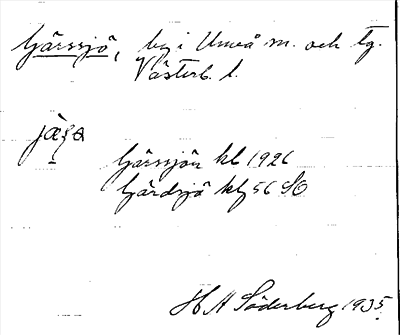 Gärssjö, by i Umeå sn. och tg.
Västerb. l.
Gärssjön kb 1926
Gärdsjö kbg 56 SO
H A Söderberg 1935.